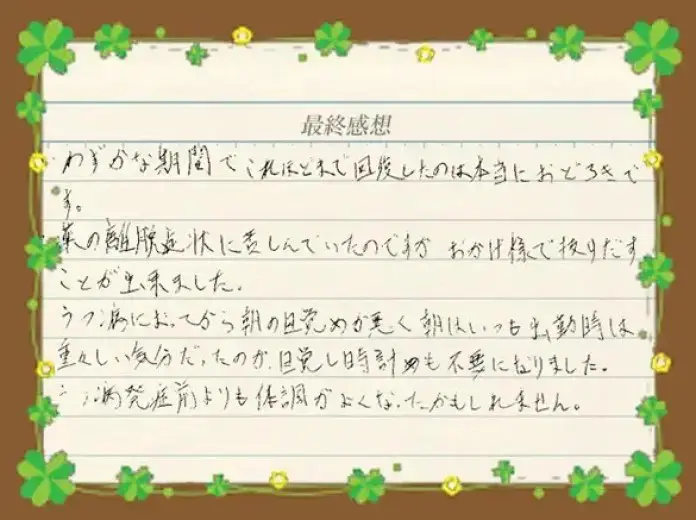 最終感想
わずかな期間でこれほどまで回復したのは本当におどろきで
す。
薬の離脱症状に苦しんでいたのですが おかげ様で抜りだす
ことが出来ました。
うつ病になってから朝の目覚めが悪く朝はいつも出勤時は
重々しい気分だったのが、目覚し時計も不要になりました。
うつ病発症前よりも体調がよくなったかもしれません。